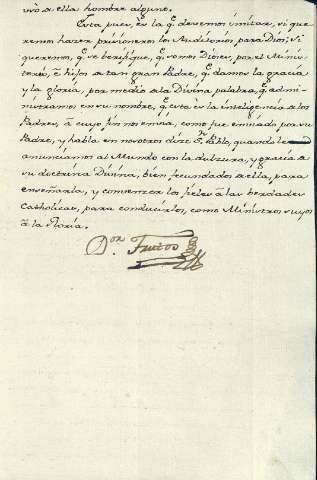 vio a ella hombre alguno.
Esta pues, es la q.e devemos imitar, si que
remos hazer prisioneros los Auditorios, para Dios; si
queremos, q.e se berifique, q.e somos Dioses, por el Minis
terio, è hijos de tan gran Padre, q.e damos la gracia
y la gloria, por medio de la Divina palabra, q.e admi
nistramos en su nombre, q.e esta es la inteligencia de los
Padres, à cuyo fin nos envia, como fue enviado por su
Padre, y habla en nosotros dize S.n Pablo, quando le
anunciamos al Mundo con la dulzura, y gracia de
su doctrina Divina, bien fecundados de ella, para
enseñarla, y comenzer los fieles à las berdades
Catholicas, para conducirlos, como Ministros suyos
à la Gloria.
D.n Frutos